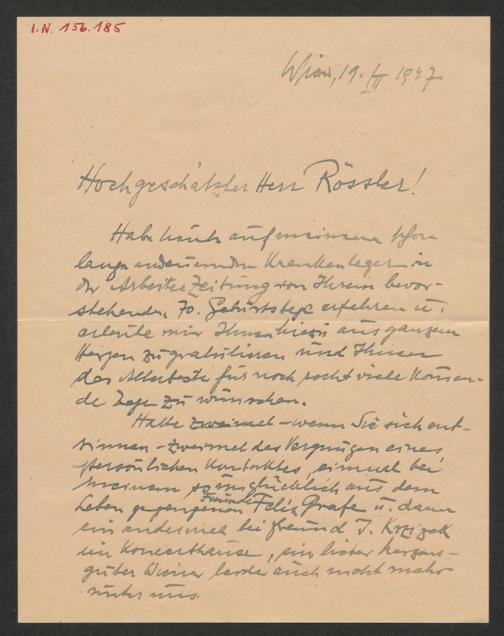 I.N. 156.185
Wien, 19. II 1947
Hochgeschätzter Herr Rössler!
Habe heute auf meinem schon
lange andauernden Krankenlager in
der Arbeiter Zeitung von Ihrem bevor-
stehenden 70. Geburtstage erfahren u.
erlaube mir Ihnen hiezu aus ganzem
Herzen zu gratulieren und Ihnen
das Allerbeste für noch recht viele kommen-
de Tage zu wünschen.
Hatte zweimal - wenn Sie sich ent-
sinnen - zweimal das Vergnügen eines
persönlichen Kontaktes, einmal bei
meinem so unglücklich aus dem
Leben gegangenen Freunde Felix Grafe u. dann
ein andermal bei Freund J. Krzizek
im Konzerthause, ein lieber herzens-
guter Wiener leider auch nicht mehr
unter uns.